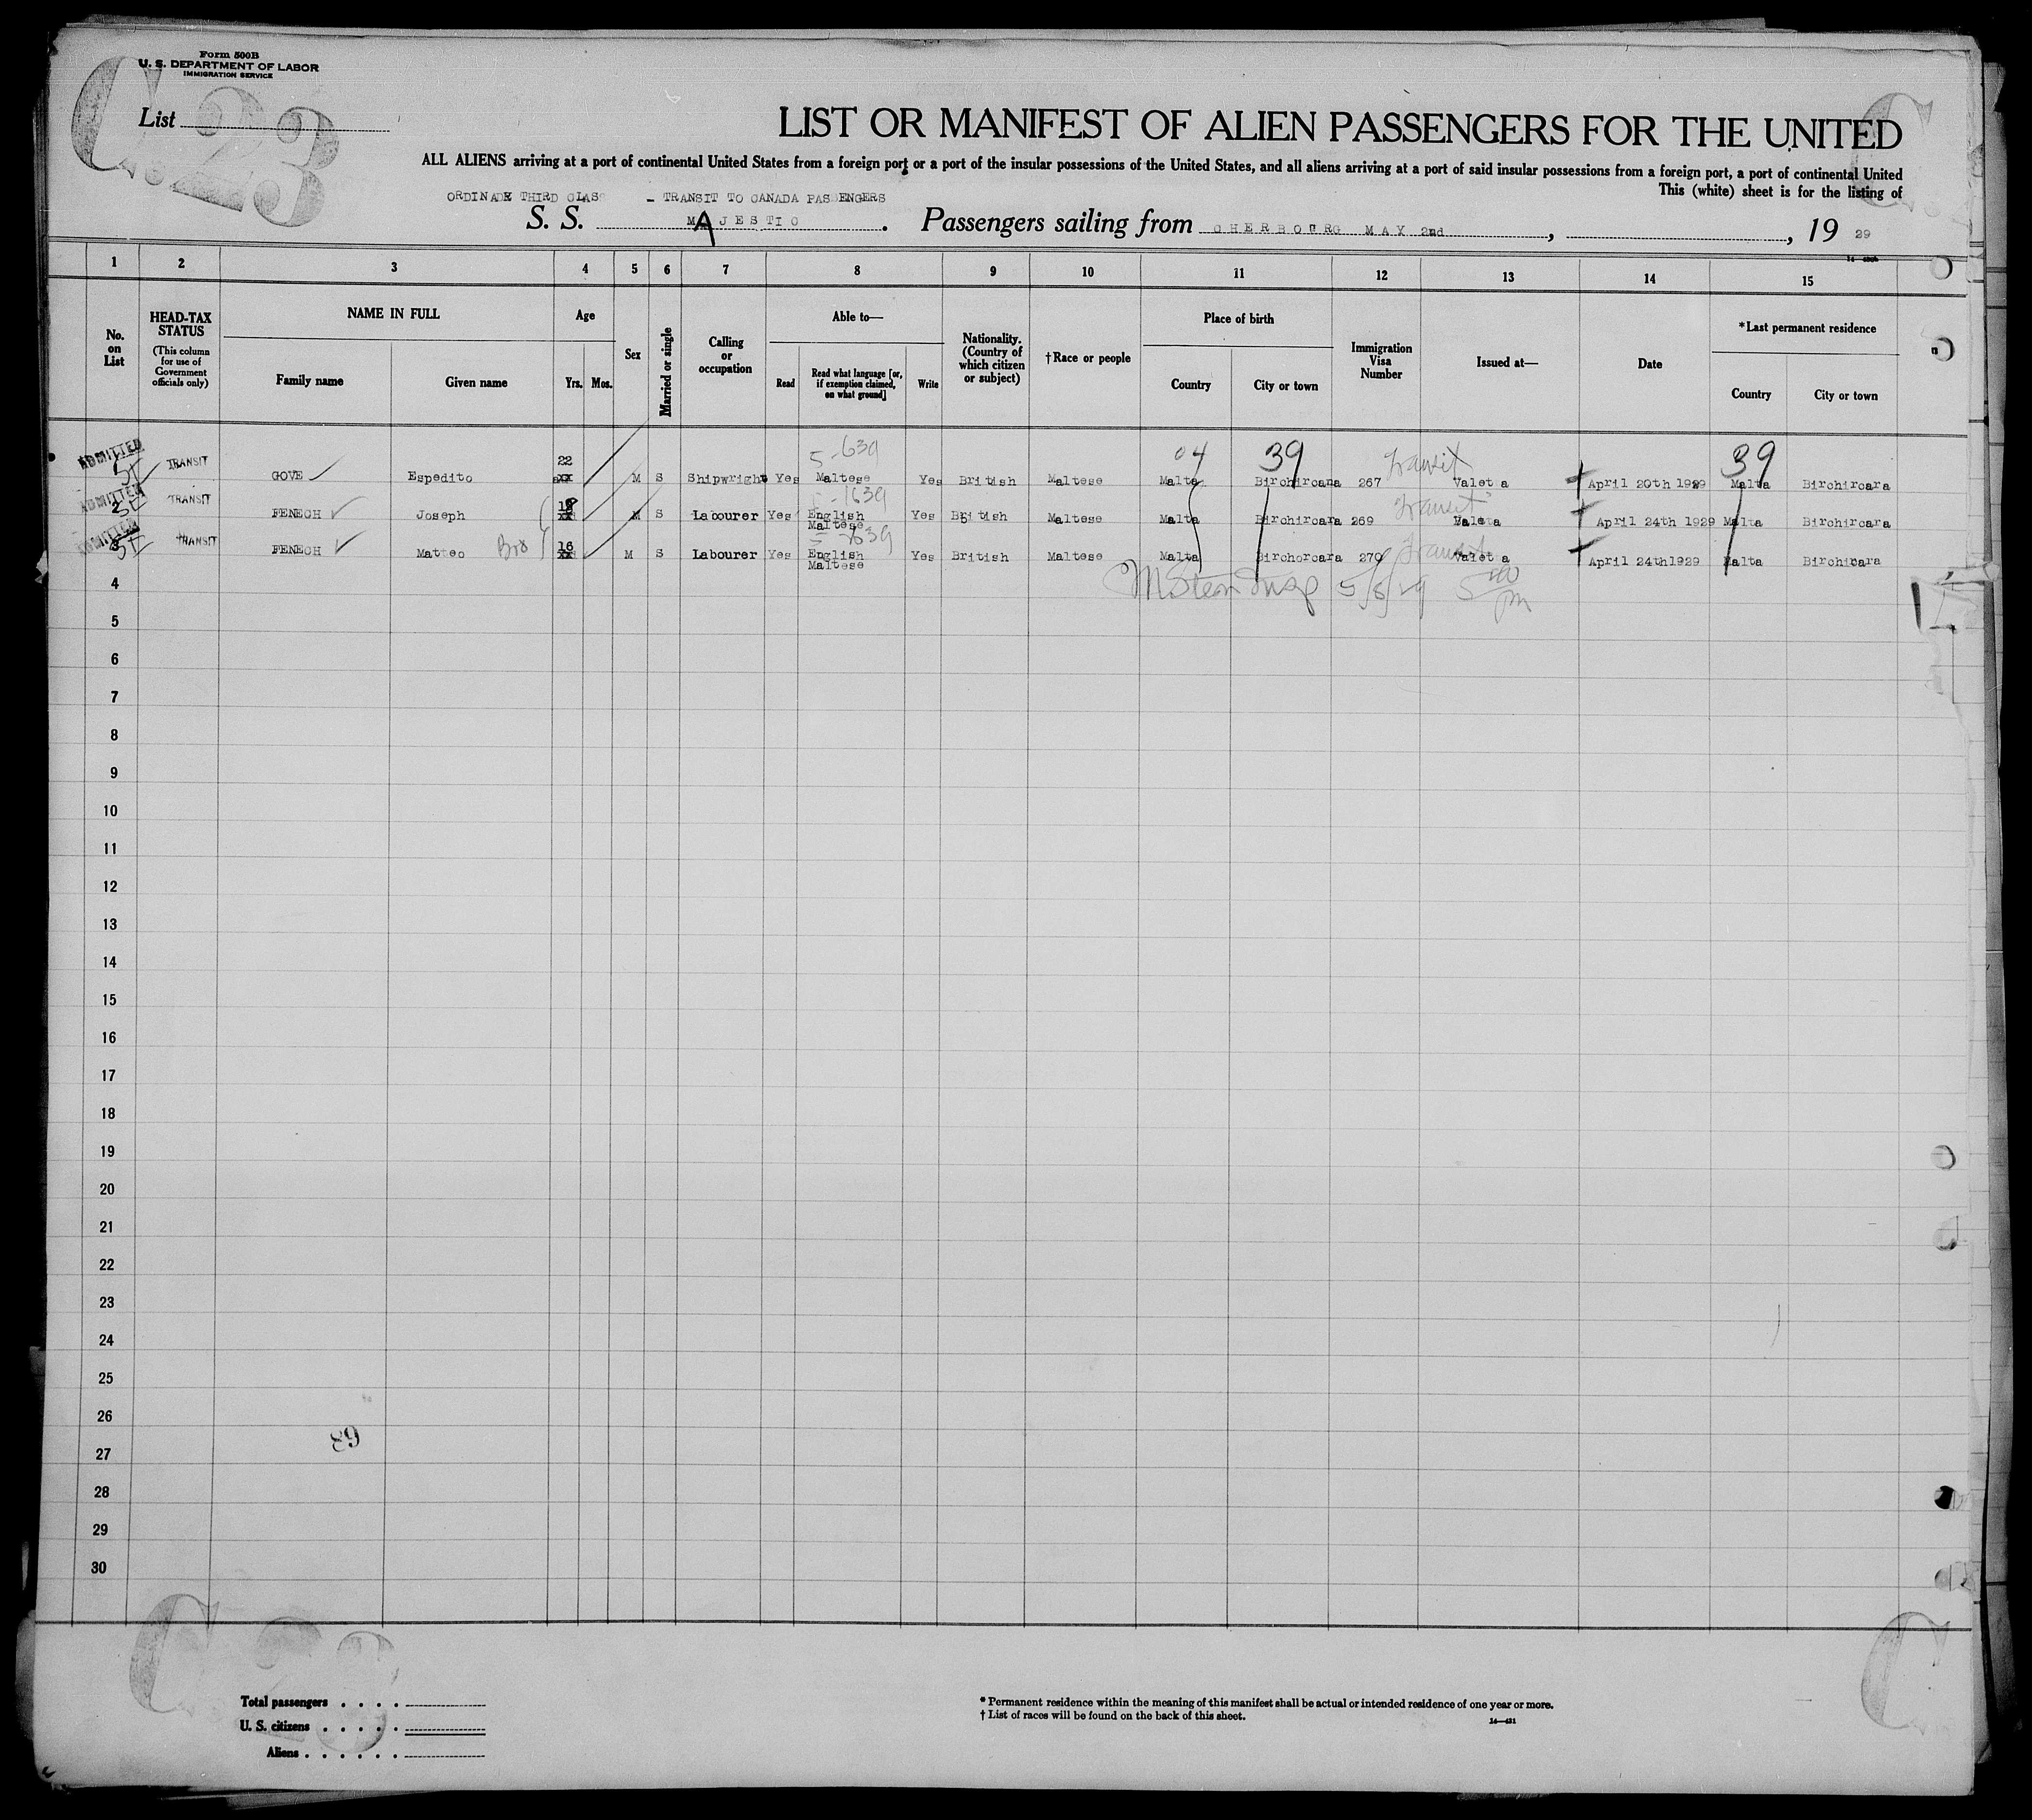 Form 500B
U. S. DEPARTMENT OF LABOR
IMMIGRATION SERVICE
C.23
List
LIST OR MANIFEST OF ALIEN PASSENGERS FOR THE UNITED
ALL ALIENS arriving at a port of continental United States from a foreign port or a port of the insular possessions of the United States, and all aliens arriving at a port of said insular possessions from a foreign port, a port of continental United
This (white) sheet is for the listing of
ORDINADE THIRD CLASS – TRANSIT TO CANADA PASSENGERS
S. S. MAJESTIC. Passengers sailing from CHERBOURG MAY 2nd, , 19 29
1 2 3 4 5 6 7 8 9 10 11 12 13 14 15
No. on List
HEAD-TAX STATUS
(This column for use of Government officials only)
NAME IN FULL
Family name Given name
Age
Yrs. Mos.
Sex
Married or single
Calling or occupation
Able to—
Read Read what language [or, if exemption claimed, on what ground] Write
Nationality. (Country of which citizen or subject)
†Race or people
Place of birth
Country City or town
Immigration Visa Number
Issued at—
Date
*Last permanent residence
Country City or town
5-639 04 39 Transit 39
ADMITTED 1 TRANSIT GOVE Espedito 22 M S Shipwright Yes Maltese Yes British Maltese Malta Birchircara 267 Valetta April 20th 1929 Malta Birchircara
ADMITTED 2 TRANSIT FENECH Joseph M S Labourer Yes English Maltese Yes British Maltese Malta Birchircara 269 Transit Valetta April 24th 1929 Malta Birchircara
ADMITTED 3 TRANSIT FENECH Matteo Bro 16 M S Labourer Yes English Maltese Yes British Maltese Malta Birchorcara 270 Transit Valetta April 24th1929 Malta Birchircara
4 5/8/29 5 00 pm
5
6
7
8
9
10
11
12
13
14
15
16
17
18
19
20
21
22
23
24
25
26
27
28
29
30
Total passengers . . . .
U. S. citizens . . . . .
Aliens . . . . . .
* Permanent residence within the meaning of this manifest shall be actual or intended residence of one year or more.
† List of races will be found on the back of this sheet.
14—421